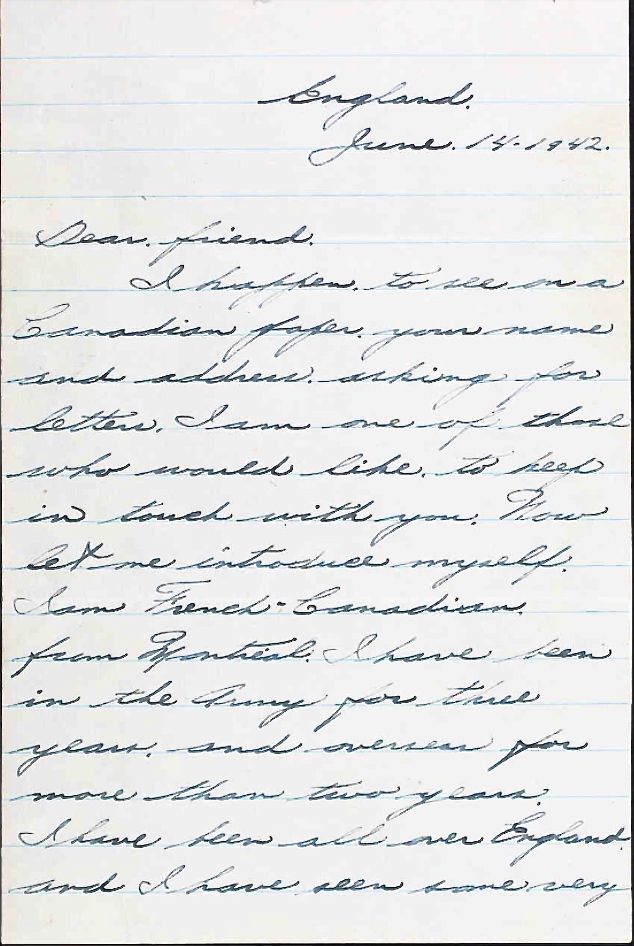 England.
June. 14. 1942.
Dear. friend.
I happen. to see on a
Canadian paper. your name
and address. asking for
letters. I am one of those
who would like. to keep
in touch with you. Now
let me introduce myself.
I am French-Canadian.
from Montreal. I have been
in the Army for three
years. and overseas for
more than two years.
I have been all over England.
and I have seen some very